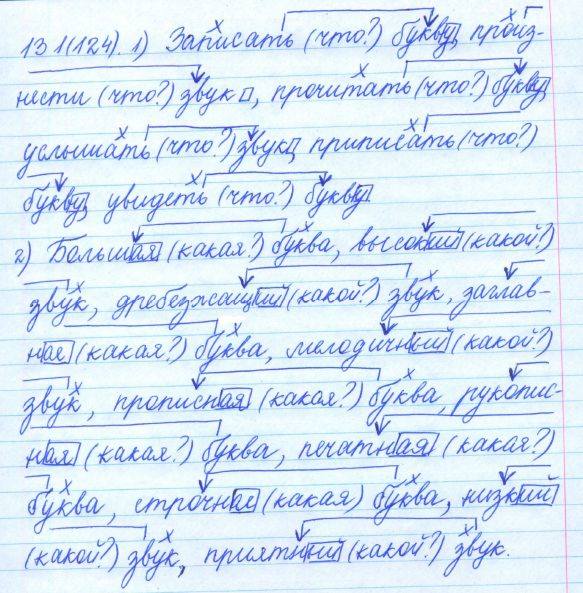 131(124). 1) Записать (что?) букву, произ-
нести (что?) звук, прочитать (что?) букву,
услышать (что?) звук, приписать (что?)
букву, увидеть (что?) букву.
2) Большая (какая?) буква, высокий (какой?)
звук, дребезжащий (какой?) звук, заглав-
ная (какая?) буква, мелодичный (какой?)
звук, прописная (какая?) буква, рукопис-
ная (какая?) буква, печатная (какая?)
буква, строчная (какая) буква, низкий
(какой?) звук, приятный (какой?) звук.